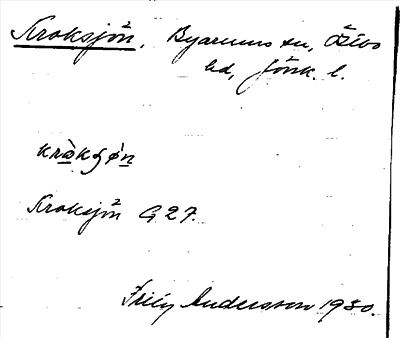 Kroksjön, Byarums sn, Östbo
hd, Jönk. l.
kràkʂǿn
Kroksjön G 27.
Andersson 1930.